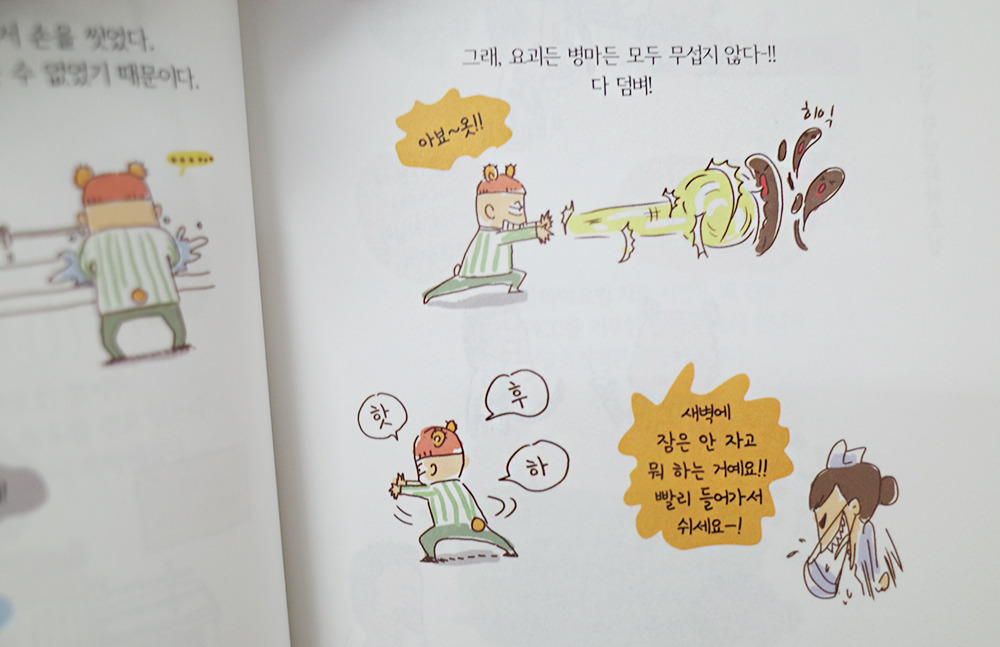 손을 씻었다.
수 없었기 때문이다.
그래, 요괴든 병마든 모두 무섭지 않다~!!
다 덤벼!
아뵤~옷!!
히익
핫
후
하
새벽에
잠은 안 자고
뭐 하는 거예요!!
빨리 들어가서
쉬세요~!